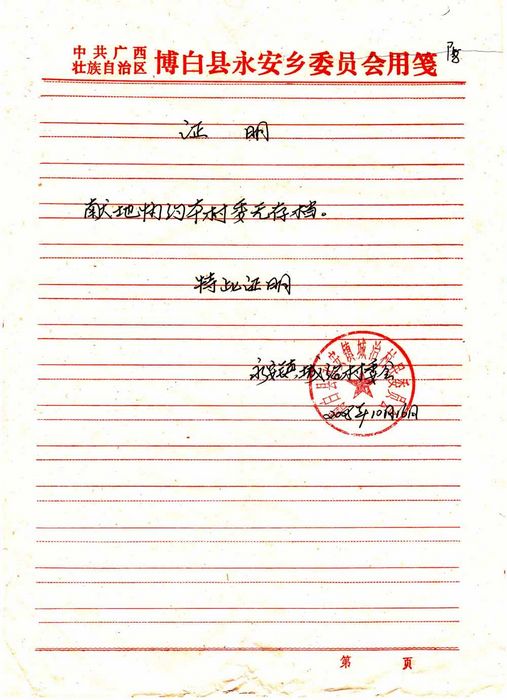 中共广西
壮族自治区
博白县永安乡委员会用笺
证 明
献地惆约本村委无存档。
特此证明
永安镇城治村委会
2008年10月16日
第 页